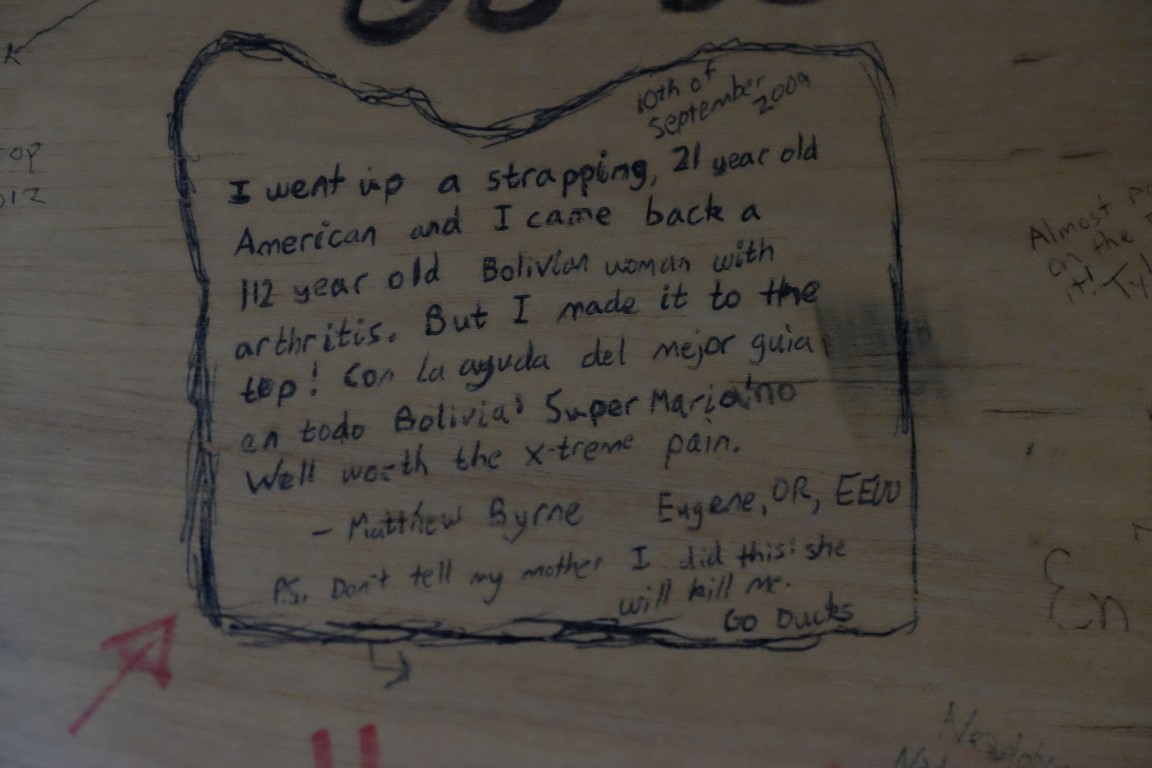 10th of
September
2009
I went up a strapping, 21 year old
American and I came back a
112 year old Bolivian woman with
arthritis. But I made it to the
top! Con la ayuda del mejor guia
en todo Bolivia: Super Mariano
Well worth the x-treme pain.
- Matthew Byrne Eugene, OR, EEUU
P.S. Don't tell my mother I did this: she
will kill me.
Go Ducks
Almost
on the
it!
En